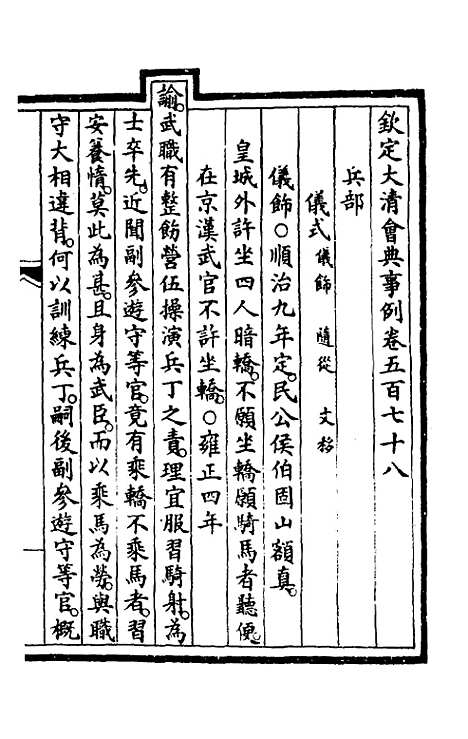 欽定大清會典事例卷五百七十八
兵部
儀式 儀飾 隨從 文移
儀飾〇順治九年定。民公侯伯固山額真。
皇城外許坐四人暗轎。不願坐轎願騎馬者聽便。
在京漢武官不許坐轎。〇雍正四年
諭。武職有整飭營伍操演兵丁之責。理宜服習騎射。為
士卒先。近聞副參遊守等官。竟有乘轎不乘馬者。習
安養惰。莫此為甚。且身為武臣。而以乘馬為勞。與職
守大相違背。何以訓練兵丁。嗣後副參遊守等官。概